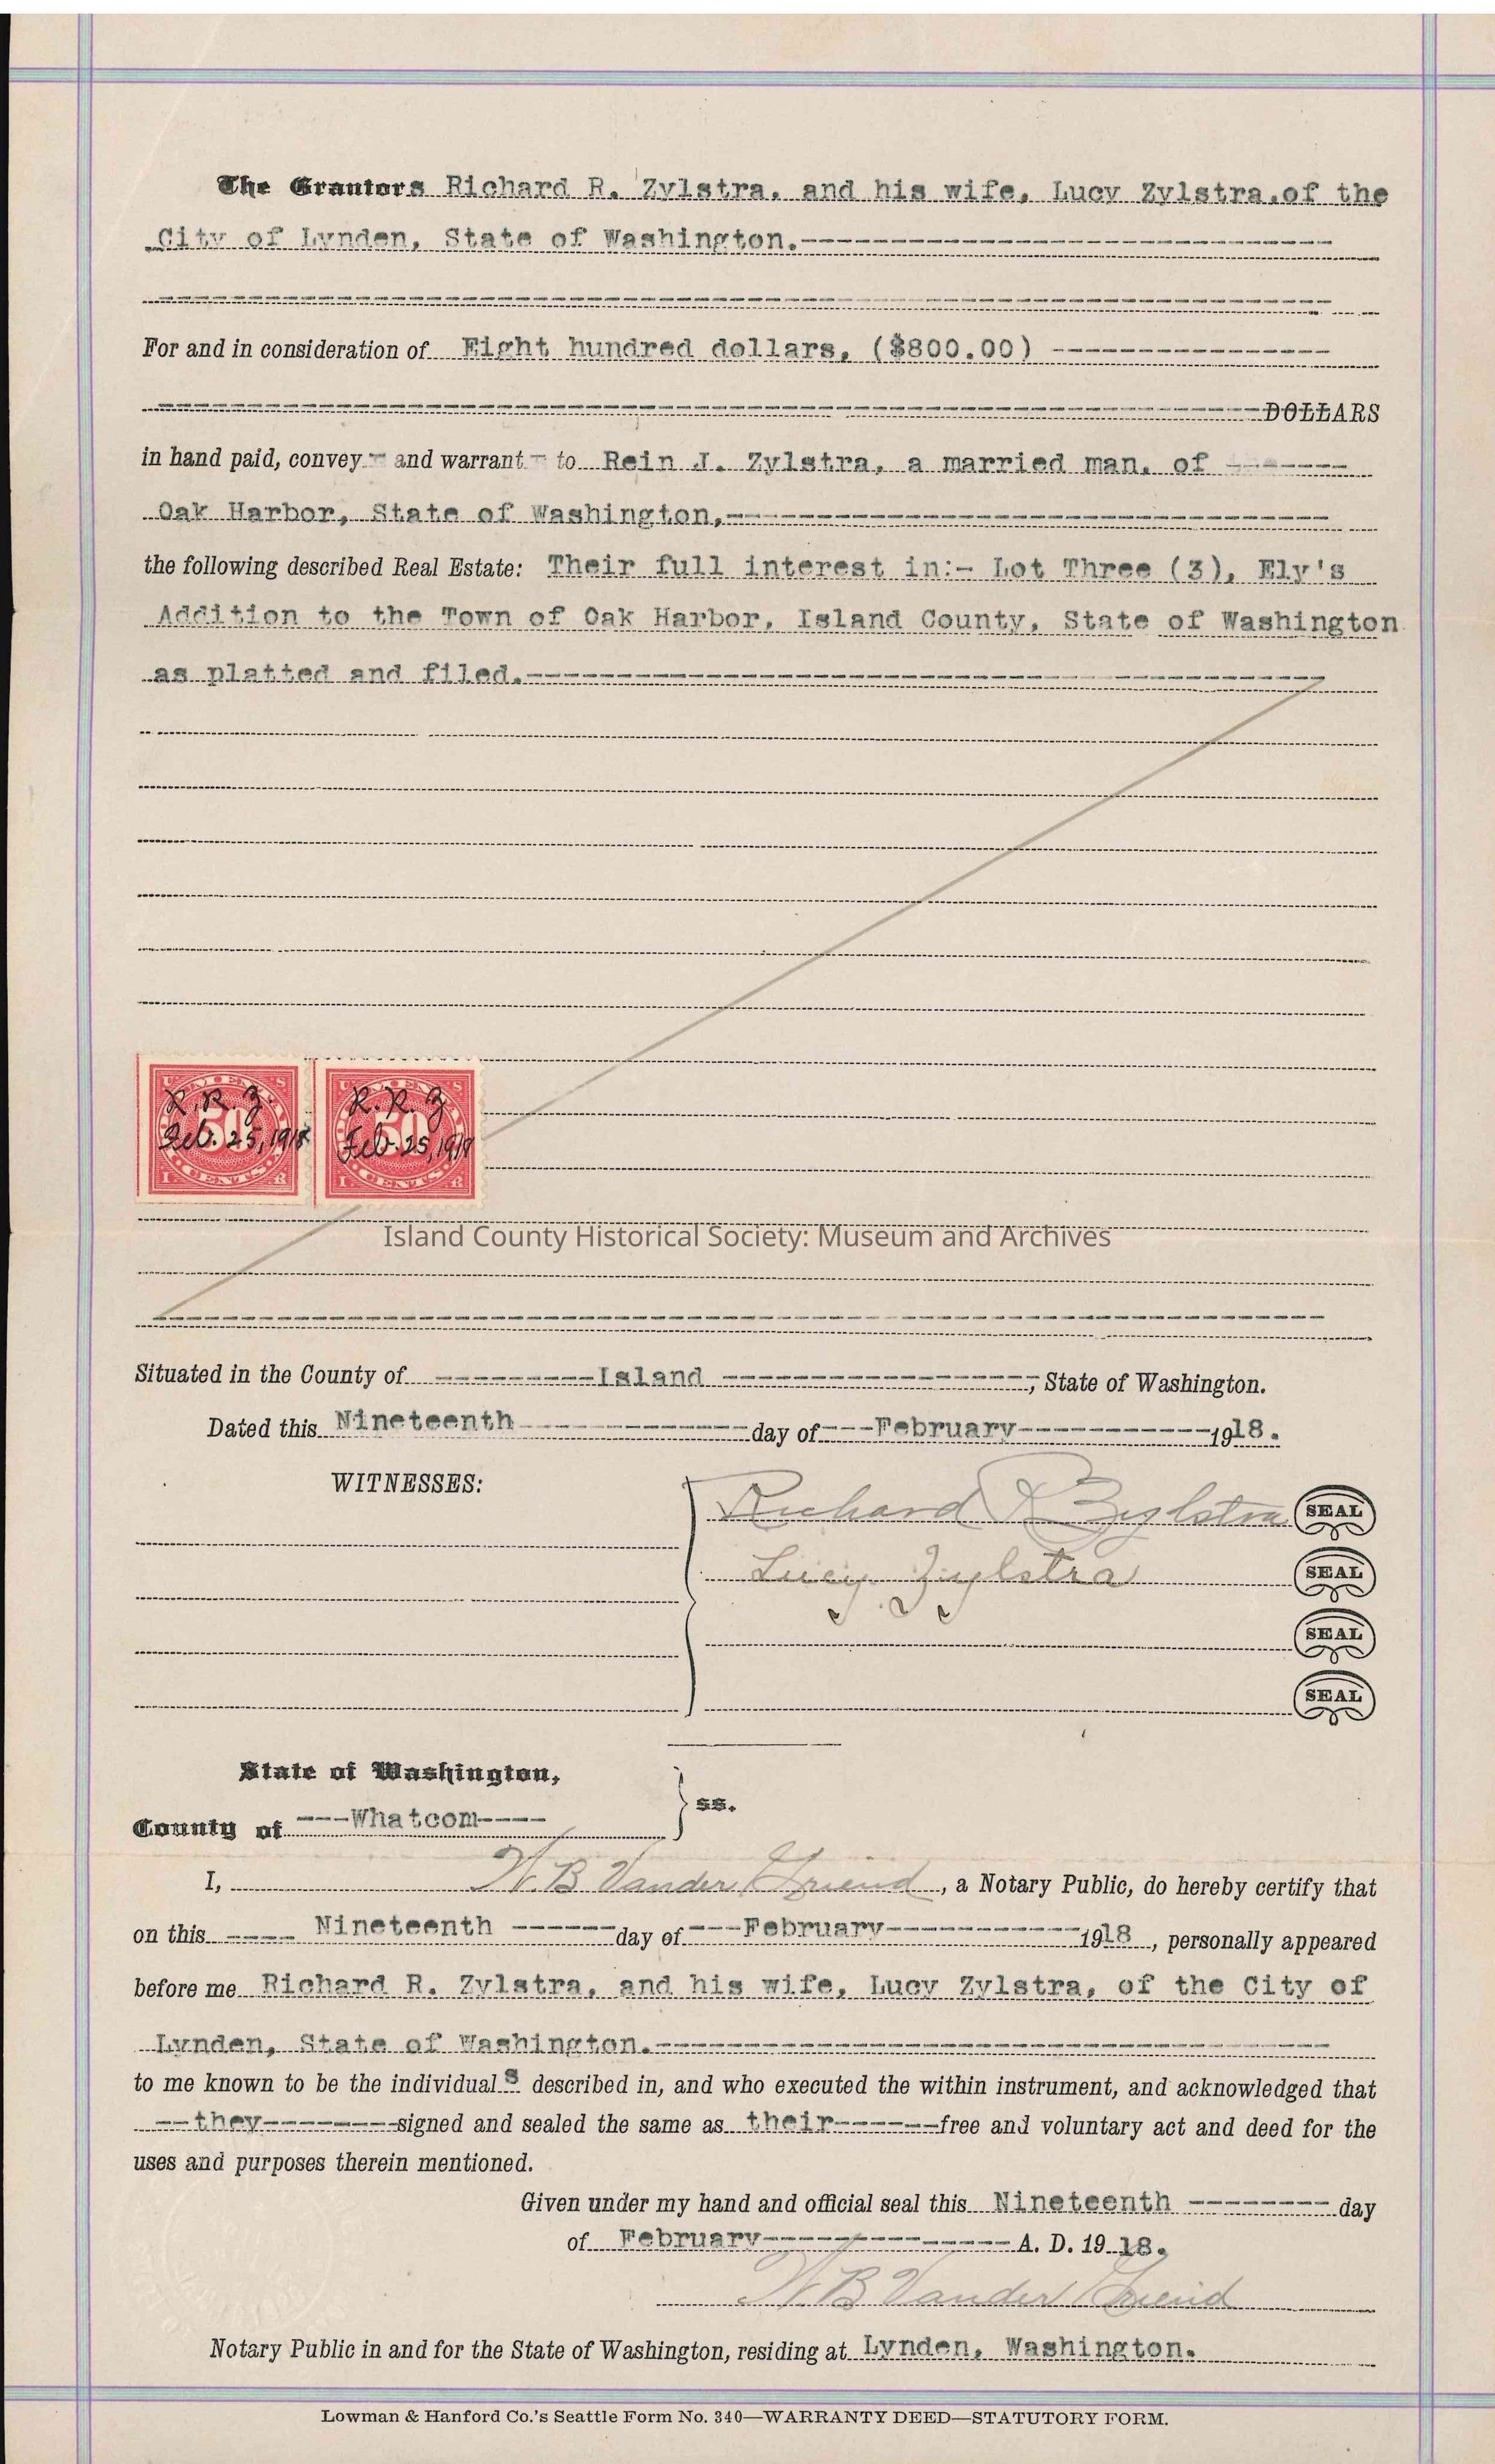 The Grantors Richard R. Zylstra, and his wife, Lucy Zylstra, of the
City of Lynden, State of Washington.
For and in consideration of Eight hundred dollars, ($800.00)
DOLLARS
in hand paid, convey and warrant to Rein J. Zylstra, a married man, of
Oak Harbor, State of Washington,
the following described Real Estate: Their full interest in:- Lot Three (3), Ely's
Addition to the Town of Oak Harbor, Island County, State of Washington
as platted and filed.
R.R.Z. R.R.Z
Feb. 25, 1918 Feb. 25, 1918
50 50
CENTS CENTS
Island County Historical Society: Museum and Archives
Situated in the County of Island, State of Washington.
Dated this Nineteenth day of February 1918.
WITNESSES:
Richard R Zylstra SEAL
Lucy Zylstra SEAL
SEAL
SEAL
State of Washington,
County of Whatcom ss.
I, W. B Vander Griend, a Notary Public, do hereby certify that
on this Nineteenth day of February 1918, personally appeared
before me Richard R. Zylstra, and his wife, Lucy Zylstra, of the City of
Lynden, State of Washington.
to me known to be the individual s described in, and who executed the within instrument, and acknowledged that
they signed and sealed the same as their free and voluntary act and deed for the
uses and purposes therein mentioned.
Given under my hand and official seal this Nineteenth day
of February A. D. 19 18.
W B Vander Griend
Notary Public in and for the State of Washington, residing at Lynden, Washington.
Lowman & Hanford Co.'s Seattle Form No. 340—WARRANTY DEED—STATUTORY FORM.